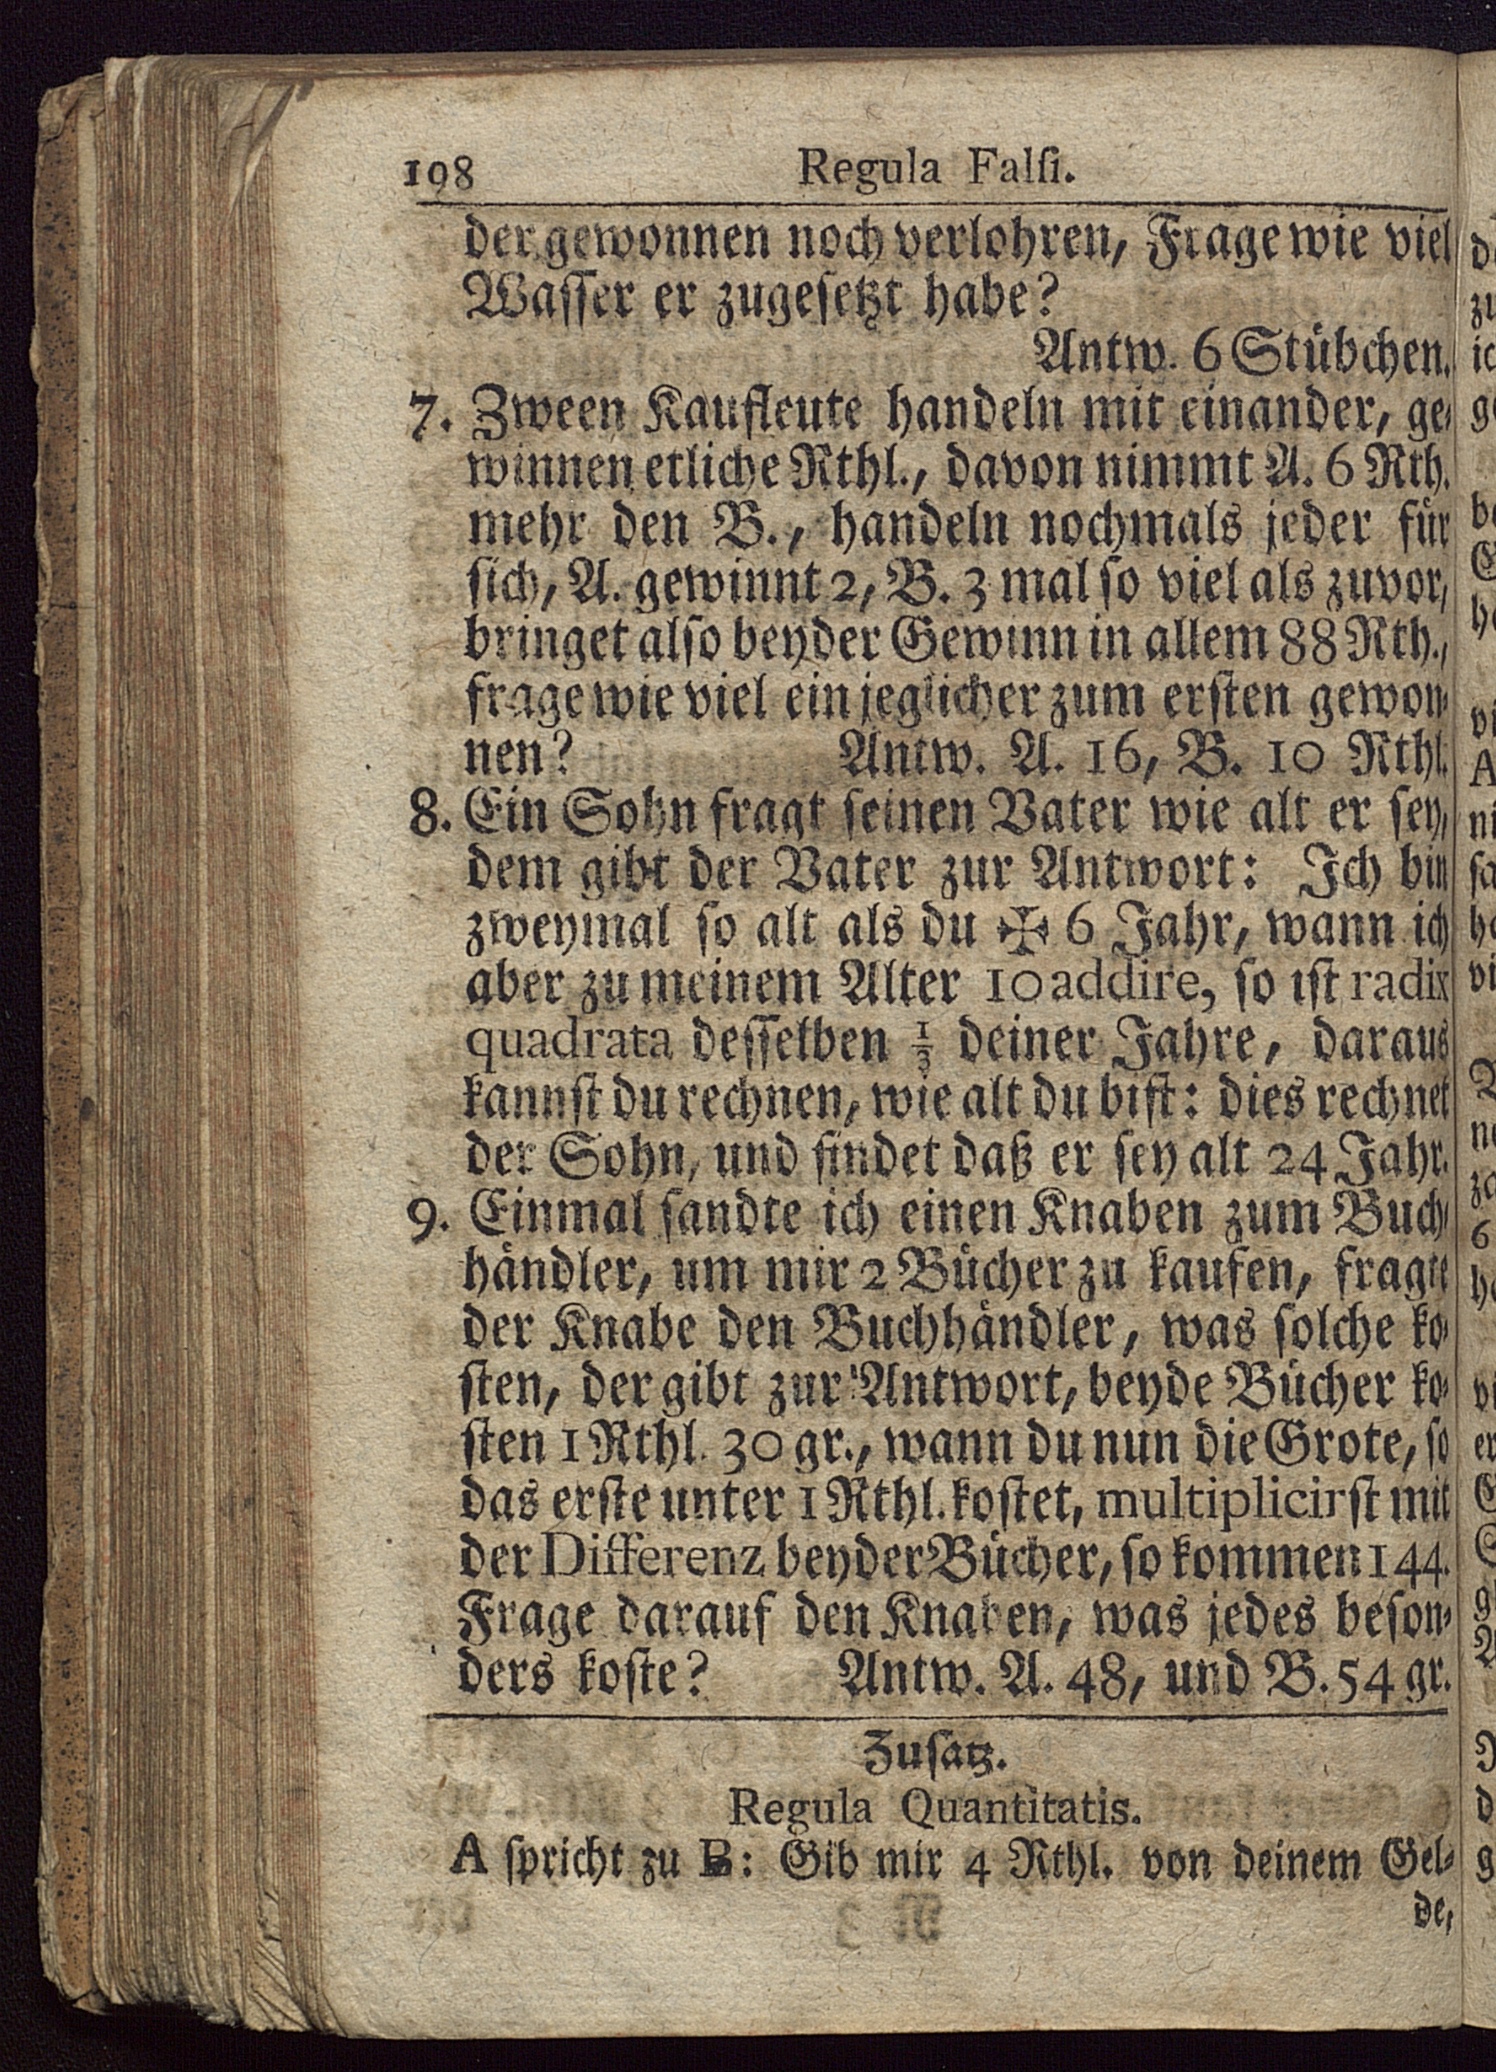 198 Regula Falſi.
der gewonnen noch verlohren, Frage wie viel
Waſſer er zugeſetzt habe?
Antw. 6 Stübchen.
7. Zween Kaufleute handeln mit einander, ge-
winnen etliche Rthl., davon nimmt A. 6 Rth.
mehr den B., handeln nochmals jeder für
ſich, A. gewinnt 2, B. 3 mal ſo viel als zuvor,
bringet alſo beyder Gewinn in allem 88 Rth.,
frage wie viel ein jeglicher zum erſten gewon-
nen? Antw. A. 16, B. 10 Rthl.
8. Ein Sohn fragt ſeinen Vater wie alt er ſey,
dem gibt der Vater zur Antwort: Ich bin
zweymal ſo alt als du ✠ 6 Jahr, wann ich
aber zu meinem Alter 10 addire, ſo iſt radix
quadrata deſſelben ⅓ deiner Jahre, daraus
kannſt du rechnen, wie alt du biſt: dies rechnet
der Sohn, und findet daß er ſey alt 24 Jahr.
9. Einmal ſandte ich einen Knaben zum Buch-
händler, um mir 2 Bücher zu kaufen, fragte
der Knabe den Buchhändler, was ſolche ko-
ſten, der gibt zur Antwort, beyde Bücher ko-
ſten 1 Rthl. 30 gr., wann du nun die Grote, ſo
das erſte unter 1 Rthl. koſtet, multiplicirſt mit
der Differenz beyder Bücher, ſo kommen 144.
Frage darauf den Knaben, was jedes beſon-
ders koſte? Antw. A. 48, und B. 54 gr.
Zuſatz.
Regula Quantitatis.
A ſpricht zu B: Gib mir 4 Rthl. von deinem Gel-
de,